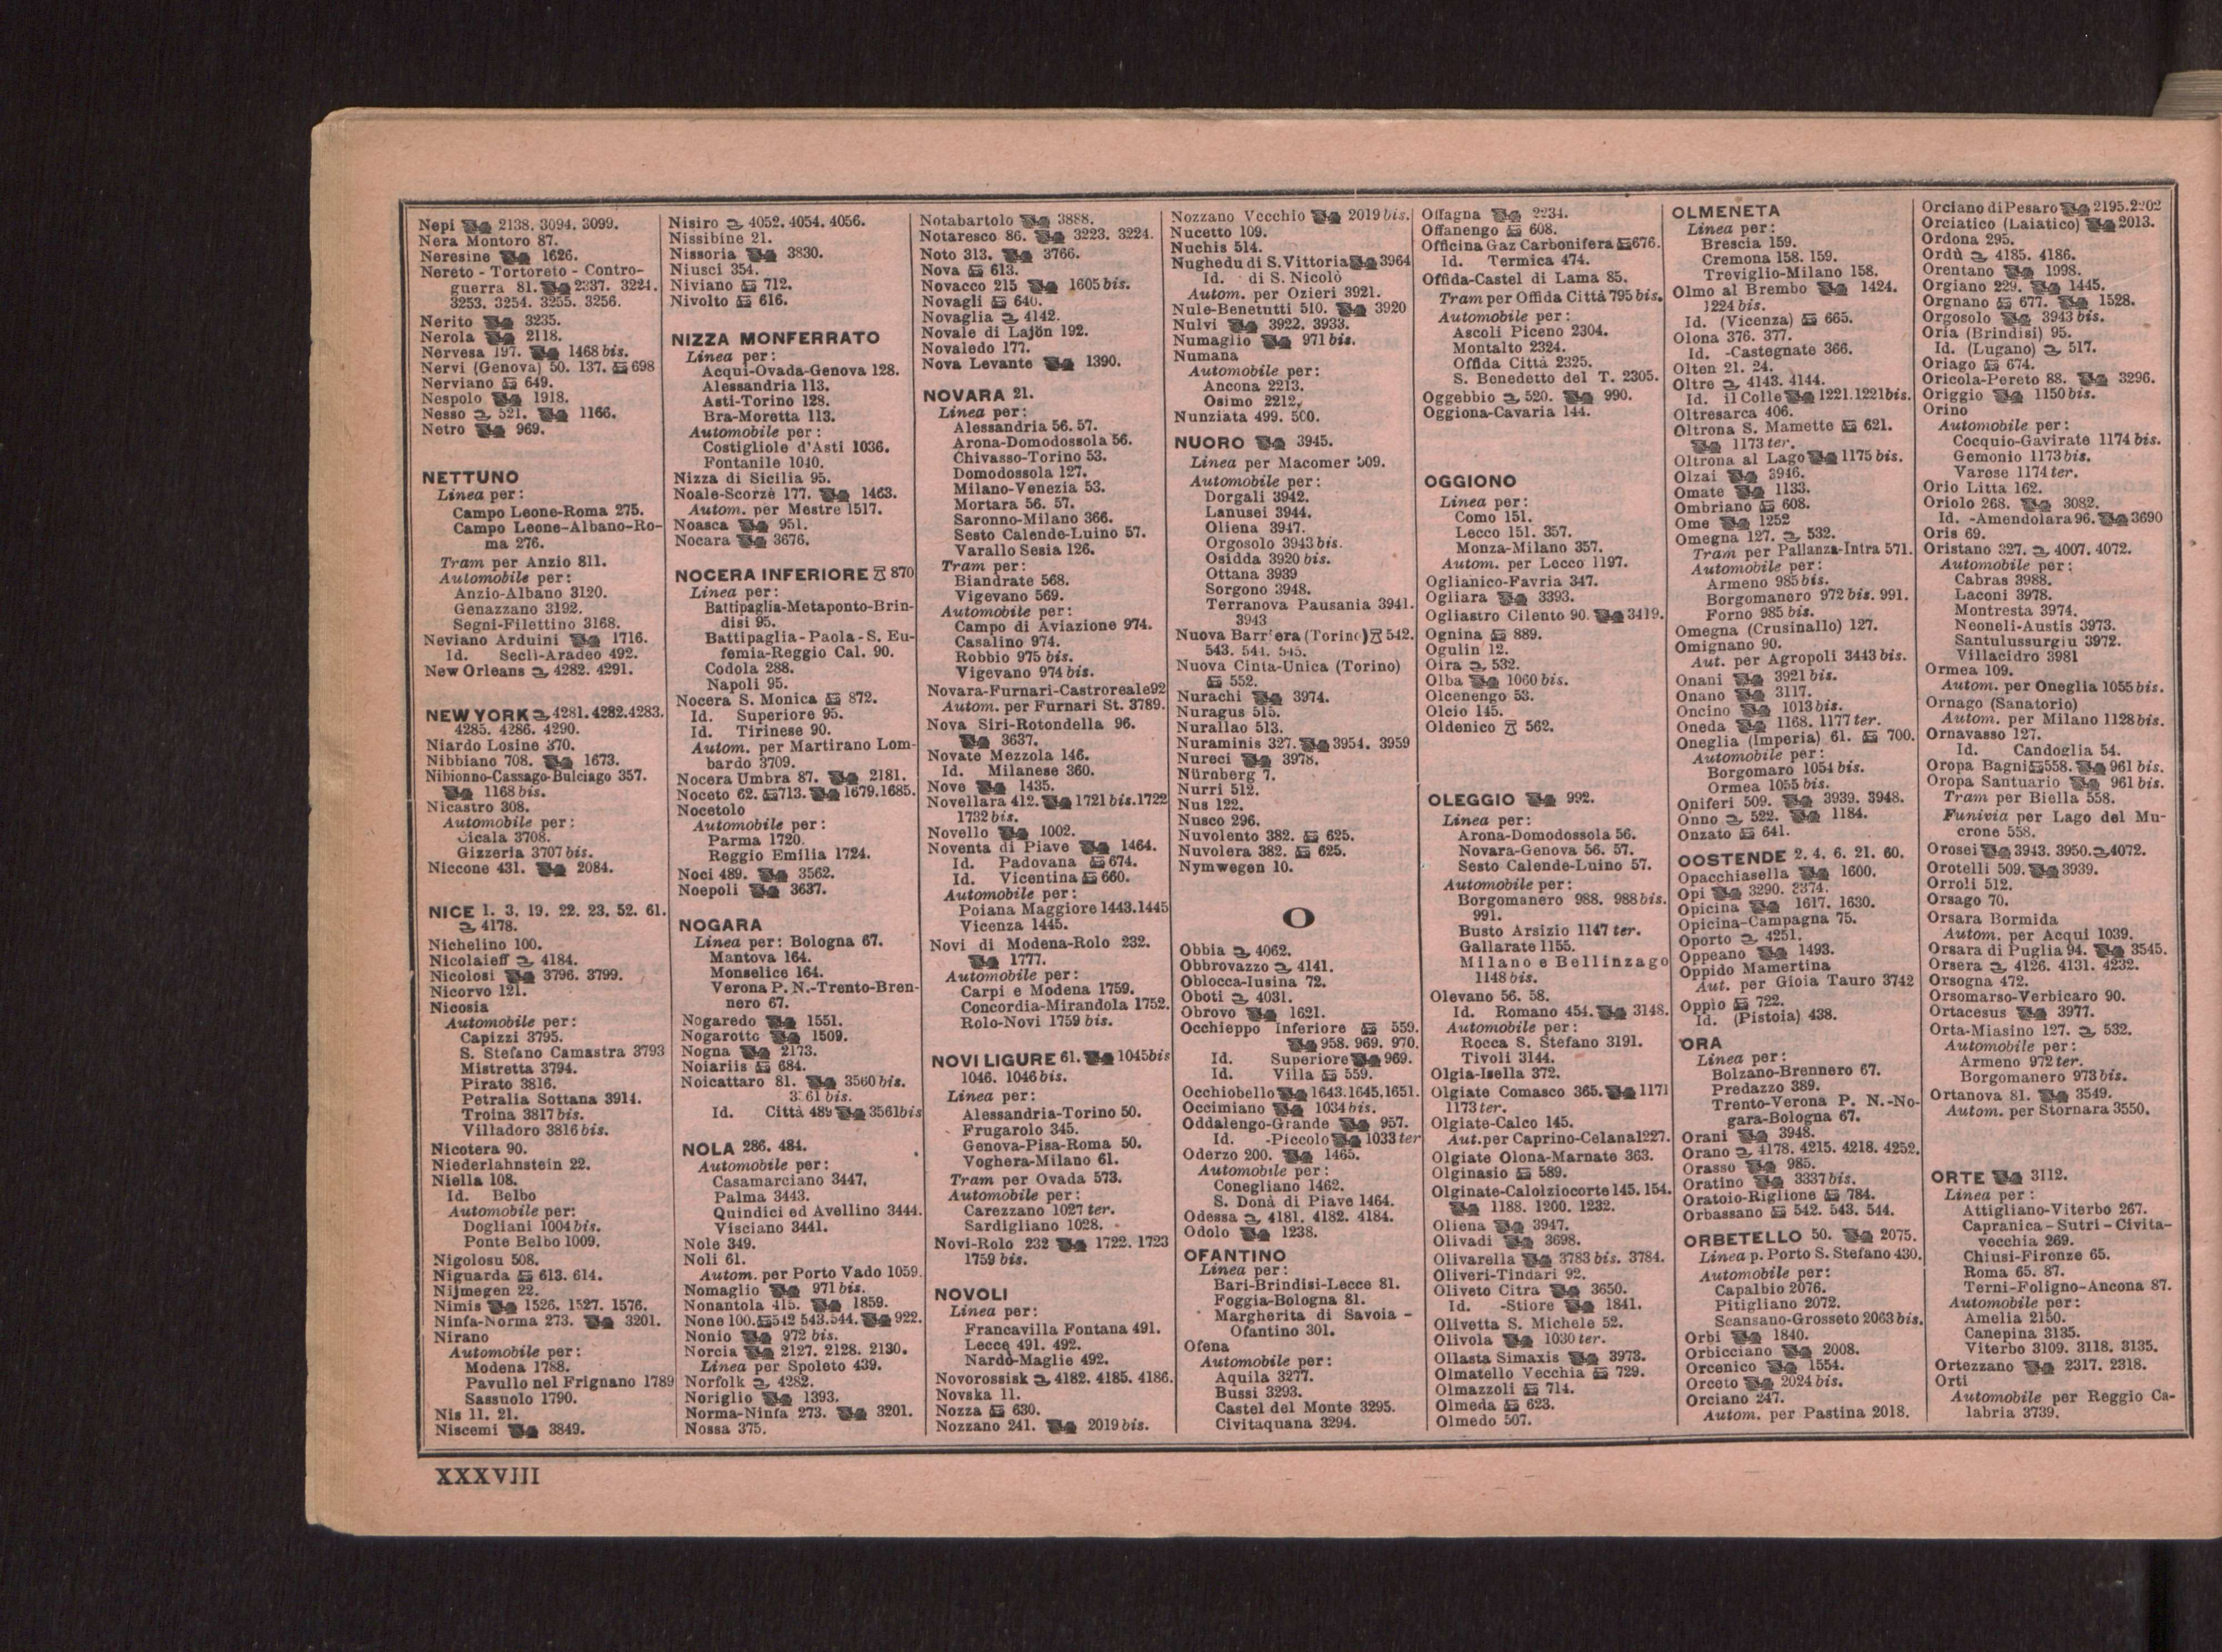 Nepi 2138. 3094. 3099.
Nera Montoro 87.
Neresine 1626.
Nereto - Tortoreto - Contro-
guerra 81. 2237. 3224.
3253. 3254. 3255. 3256.
Nerito 3235.
Nerola 2118.
Nervesa 197. 1468 bis.
Nervi (Genova) 50. 137. 698
Nerviano 649.
Nespolo 1918.
Nesso 521. 1166.
Netro 969.
NETTUNO
Linea per:
Campo Leone-Roma 275.
Campo Leone-Albano-Ro-
ma 276.
Tram per Anzio 811.
Automobile per:
Anzio-Albano 3120.
Genazzano 3192.
Segni-Filettino 3168.
Neviano Arduini 1716.
Id. Secli-Aradeo 492.
New Orleans 4282. 4291.
NEW YORK 4281. 4282. 4283.
4285. 4286. 4290.
Niardo Losine 370.
Nibbiano 708. 1673.
Nibionno-Cassago-Bulciago 357.
1168 bis.
Nicastro 308.
Automobile per:
Cicala 3708.
Gizzeria 3707 bis.
Niccone 431. 2084.
NICE 1. 3. 19. 22. 23. 52. 61.
4178.
Nichelino 100.
Nicolaieff 4184.
Nicolosi 3796. 3799.
Nicorvo 121.
Nicosia
Automobile per:
Capizzi 3795.
S. Stefano Camastra 3793
Mistretta 3794.
Pirato 3816.
Petralia Sottana 3914.
Troina 3817 bis.
Villadoro 3816 bis.
Nicotera 90.
Niederlahnstein 22.
Niella 108.
Id. Belbo
Automobile per:
Dogliani 1004 bis.
Ponte Belbo 1009.
Nigolosu 508.
Niguarda 613. 614.
Nijmegen 22.
Nimis 1526. 1527. 1576.
Ninfa-Norma 273. 3201.
Nirano
Automobile per:
Modena 1788.
Pavullo nel Frignano 1789
Sassuolo 1790.
Nis 11. 21.
Niscemi 3849.
Nisiro 4052. 4054. 4056.
Nissibine 21.
Nissoria 3830.
Niusci 354.
Niviano 712.
Nivolto 616.
NIZZA MONFERRATO
Linea per:
Acqui-Ovada-Genova 128.
Alessandria 113.
Asti-Torino 128.
Bra-Moretta 113.
Automobile per:
Costigliole d'Asti 1036.
Fontanile 1040.
Nizza di Sicilia 95.
Noale-Scorzè 177. 1463.
Autom. per Mestre 1517.
Noasca 951.
Nocara 3676.
NOCERA INFERIORE 870
Linea per:
Battipaglia-Metaponto-Brin-
disi 95.
Battipaglia-Paola-S. Eu-
femia-Reggio Cal. 90.
Codola 288.
Napoli 95.
Nocera S. Monica 872.
Id. Superiore 95.
Id. Tirinese 90.
Autom. per Martirano Lom-
bardo 3709.
Nocera Umbra 87. 2181.
Noceto 62. 713. 1679. 1685.
Nocetolo
Automobile per:
Parma 1720.
Reggio Emilia 1724.
Noci 489. 3562.
Noepoli 3637.
NOGARA
Linea per: Bologna 67.
Mantova 164.
Monselice 164.
Verona P. N.-Trento-Bren-
nero 67.
Nogaredo 1551.
Nogarotto 1509.
Nogna 2173.
Noiariis 684.
Noicattaro 81. 3560 bis.
3561 bis.
Id. Città 489 3561 bis
NOLA 286. 484.
Automobile per:
Casamarciano 3447.
Palma 3443.
Quindici ed Avellino 3444.
Visciano 3441.
Nole 349.
Noli 61.
Autom. per Porto Vado 1059.
Nomaglio 971 bis.
Nonantola 415. 1859.
None 100. 542 543. 544. 922.
Nonio 972 bis.
Norcia 2127. 2128. 2130.
Linea per Spoleto 439.
Norfolk 4282.
Noriglio 1393.
Norma-Ninfa 273. 3201.
Nossa 375.
Notabartolo 3888.
Notaresco 86. 3223. 3224.
Noto 313. 3766.
Nova 613.
Novacco 215 1605 bis.
Novagli 640.
Novaglia 4142.
Novale di Lajön 192.
Novaledo 177.
Nova Levante 1390.
NOVARA 21.
Linea per:
Alessandria 56. 57.
Arona-Domodossola 56.
Chivasso-Torino 53.
Domodossola 127.
Milano-Venezia 53.
Mortara 56. 57.
Saronno-Milano 366.
Sesto Calende-Luino 57.
Varallo Sesia 126.
Tram per:
Biandrate 568.
Vigevano 569.
Automobile per:
Campo di Aviazione 974.
Casalino 974.
Robbio 975 bis.
Vigevano 974 bis.
Novara-Furnari-Castroreale 92
Autom. per Furnari St. 3789.
Nova Siri-Rotondella 96.
3637.
Novate Mezzola 146.
Id. Milanese 360.
Nove 1435.
Novellara 412. 1721 bis. 1722
1732 bis.
Novello 1002.
Noventa di Piave 1464.
Id. Padovana 674.
Id. Vicentina 660.
Automobile per:
Poiana Maggiore 1443. 1445
Vicenza 1445.
Novi di Modena-Rolo 232.
1777.
Automobile per:
Carpi e Modena 1759.
Concordia-Mirandola 1752.
Rolo-Novi 1759 bis.
NOVI LIGURE 61. 1045 bis
1046. 1046 bis.
Linea per:
Alessandria-Torino 50.
Frugarolo 345.
Genova-Pisa-Roma 50.
Voghera-Milano 61.
Tram per Ovada 573.
Automobile per:
Carezzano 1027 ter.
Sardigliano 1028.
Novi-Rolo 232 1722. 1723
1759 bis.
NOVOLI
Linea per:
Francavilla Fontana 491.
Lecce 491. 492.
Nardò-Maglie 492.
Novorossisk 4182. 4185. 4186.
Novska 11.
Nozza 630.
Nozzano 241. 2019 bis.
Nozzano Vecchio 2019 bis.
Nucetto 109.
Nuchis 514.
Nughedu di S. Vittoria 3964
Id. di S. Nicolò
Autom. per Ozieri 3921.
Nule-Benetutti 510. 3920
Nulvi 3922. 3933.
Numaglio 971 bis.
Numana
Automobile per:
Ancona 2213.
Osimo 2212.
Nunziata 499. 500.
NUORO 3945.
Linea per Macomer 509.
Automobile per:
Dorgali 3942.
Lanusei 3944.
Oliena 3947.
Orgosolo 3943 bis.
Osidda 3920 bis.
Ottana 3939
Sorgono 3948.
Terranova Pausania 3941.
3943
Nuova Barriera (Torino) 542.
543. 544. 545.
Nuova Cinta-Unica (Torino)
552.
Nurachi 3974.
Nuragus 515.
Nurallao 513.
Nuraminis 327. 3954. 3959
Nureci 3978.
Nürnberg 7.
Nurri 512.
Nus 122.
Nusco 296.
Nuvolento 382. 625.
Nuvolera 382. 625.
Nymwegen 10.
O
Obbia 4062.
Obbrovazzo 4141.
Oblocca-Iusina 72.
Oboti 4031.
Obrovo 1621.
Occhieppo Inferiore 559.
958. 969. 970.
Id. Superiore 969.
Id. Villa 559.
Occhiobello 1643. 1645. 1651.
Occimiano 1034 bis.
Oddalengo-Grande 957.
Id. -Piccolo 1033 ter
Oderzo 200. 1465.
Automobile per:
Conegliano 1462.
S. Donà di Piave 1464.
Odessa 4181. 4182. 4184.
Odolo 1238.
OFANTINO
Linea per:
Bari-Brindisi-Lecce 81.
Foggia-Bologna 81.
Margherita di Savoia -
Ofantino 301.
Ofena
Automobile per:
Aquila 3277.
Bussi 3293.
Castel del Monte 3295.
Civitaquana 3294.
Offagna 2234.
Offanengo 608.
Officina Gaz Carbonifera 676.
Id. Termica 474.
Offida-Castel di Lama 85.
Tram per Offida Città 795 bis.
Automobile per:
Ascoli Piceno 2304.
Montalto 2324.
Offida Città 2325.
S. Benedetto del T. 2305.
Oggebbio 520. 990.
Oggiona-Cavaria 144.
OGGIONO
Linea per:
Como 151.
Lecco 151. 357.
Monza-Milano 357.
Autom. per Lecco 1197.
Oglianico-Favria 347.
Ogliara 3393.
Ogliastro Cilento 90. 3419.
Ognina 889.
Ogulin 12.
Oira 532.
Olba 1060 bis.
Olcenengo 53.
Olcio 145.
Oldenico 562.
OLEGGIO 992.
Linea per:
Arona-Domodossola 56.
Novara-Genova 56. 57.
Sesto Calende-Luino 57.
Automobile per:
Borgomanero 988. 988 bis.
991.
Busto Arsizio 1147 ter.
Gallarate 1155.
Milano e Bellinzago
1148 bis.
Olevano 56. 58.
Id. Romano 454. 3148.
Automobile per:
Rocca S. Stefano 3191.
Tivoli 3144.
Olgia-Isella 372.
Olgiate Comasco 365. 1171
1173 ter.
Olgiate-Calco 145.
Aut. per Caprino-Celana 1227.
Olgiate Olona-Marnate 363.
Olginasio 589.
Olginate-Calolziocorte 145. 154.
1188. 1200. 1232.
Oliena 3947.
Olivadi 3698.
Olivarella 3783 bis. 3784.
Oliveri-Tindari 92.
Oliveto Citra 3650.
Id. -Stiore 1841.
Olivetta S. Michele 52.
Olivola 1030 ter.
Ollasta Simaxis 3973.
Olmatello Vecchia 729.
Olmazzoli 714.
Olmeda 623.
Olmedo 507.
OLMENETA
Linea per:
Brescia 159.
Cremona 158. 159.
Treviglio-Milano 158.
Olmo al Brembo 1424.
1224 bis.
Id. (Vicenza) 665.
Olona 376. 377.
Id. -Castegnate 366.
Olten 21. 24.
Oltre 4143. 4144.
Id. il Colle 1221. 1221 bis.
Oltresarca 406.
Oltrona S. Mamette 621.
1173 ter.
Oltrona al Lago 1175 bis.
Olzai 3946.
Omate 1133.
Ombriano 608.
Ome 1252
Omegna 127. 532.
Tram per Pallanza-Intra 571.
Automobile per:
Armeno 985 bis.
Borgomanero 972 bis. 991.
Forno 985 bis.
Omegna (Crusinallo) 127.
Omignano 90.
Aut. per Agropoli 3443 bis.
Onani 3921 bis.
Onano 3117.
Oncino 1013 bis.
Oneda 1168. 1177 ter.
Oneglia (Imperia) 61. 700.
Automobile per:
Borgomaro 1054 bis.
Ormea 1055 bis.
Oniferi 509. 3939. 3948.
Onno 522. 1184.
Onzato 641.
OOSTENDE 2. 4. 6. 21. 60.
Opacchiasella 1600.
Opi 3290. 3374.
Opicina 1617. 1630.
Opicina-Campagna 75.
Oporto 4251.
Oppeano 1493.
Oppido Mamertina
Aut. per Gioia Tauro 3742
Oppio 722.
Id. (Pistoia) 438.
ORA
Linea per:
Bolzano-Brennero 67.
Predazzo 389.
Trento-Verona P. N.-No-
gara-Bologna 67.
Orani 3948.
Orano 4178. 4215. 4218. 4252.
Orasso 985.
Oratino 3337 bis.
Oratoio-Riglione 784.
Orbassano 542. 543. 544.
ORBETELLO 50. 2075.
Linea p. Porto S. Stefano 430.
Automobile per:
Capalbio 2076.
Pitigliano 2072.
Scansano-Grosseto 2063 bis.
Orbi 1840.
Orbicciano 2008.
Orcenico 1554.
Orceto 2024 bis.
Orciano 247.
Autom. per Pastina 2018.
Orciano di Pesaro 2195. 2202
Orciatico (Laiatico) 2013.
Ordona 295.
Ordù 4185. 4186.
Orentano 1998.
Orgiano 229. 1445.
Orgnano 677. 1528.
Orgosolo 3943 bis.
Oria (Brindisi) 95.
Id. (Lugano) 517.
Oriago 674.
Oricola-Pereto 88. 3296.
Origgio 1150 bis.
Orino
Automobile per:
Cocquio-Gavirate 1174 bis.
Gemonio 1173 bis.
Varese 1174 ter.
Orio Litta 162.
Oriolo 268. 3082.
Id. -Amendolara 96. 3690
Oris 69.
Oristano 327. 4007. 4072.
Automobile per:
Cabras 3988.
Laconi 3978.
Montresta 3974.
Neoneli-Austis 3973.
Santulussurgiu 3972.
Villacidro 3981
Ormea 109.
Autom. per Oneglia 1055 bis.
Ornago (Sanatorio)
Autom. per Milano 1128 bis.
Ornavasso 127.
Id. Candoglia 54.
Oropa Bagni 558. 961 bis.
Oropa Santuario 961 bis.
Tram per Biella 558.
Funivia per Lago del Mu-
crone 558.
Orosei 3943. 3950. 4072.
Orotelli 509. 3939.
Orroli 512.
Orsago 70.
Orsara Bormida
Autom. per Acqui 1039.
Orsara di Puglia 94. 3545.
Orsera 4126. 4131. 4232.
Orsogna 472.
Orsomarso-Verbicaro 90.
Ortacesus 3977.
Orta-Miasino 127. 532.
Automobile per:
Armeno 972 ter.
Borgomanero 973 bis.
Ortanova 81. 3549.
Autom. per Stornara 3550.
ORTE 3112.
Linea per:
Attigliano-Viterbo 267.
Capranica-Sutri-Civita-
vecchia 269.
Chiusi-Firenze 65.
Roma 65. 87.
Terni-Foligno-Ancona 87.
Automobile per:
Amelia 2150.
Canepina 3135.
Viterbo 3109. 3118. 3135.
Ortezzano 2317. 2318.
Orti
Automobile per Reggio Ca-
labria 3739.
XXXVIII